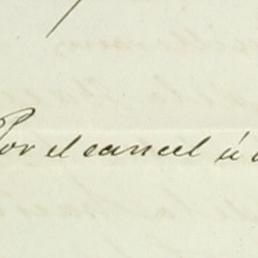 Por el cancel ú